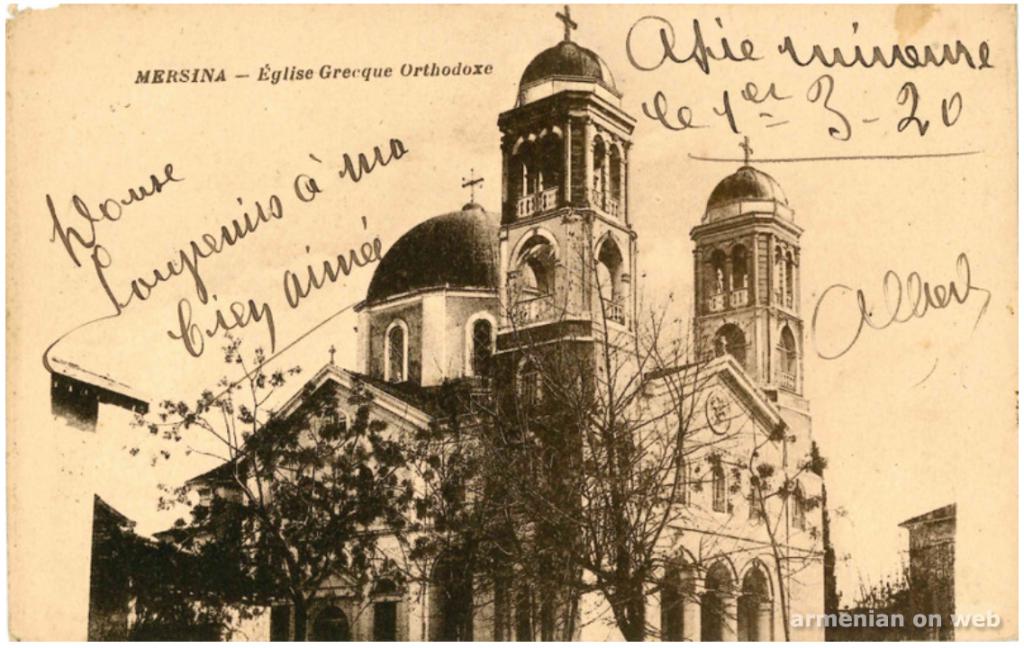 MERSINA — Église Grecque Orthodoxe
Asie mineure
le 1er-3-20
Douse
Souvenirs à ma
bien aimée
Albert
armenian on web